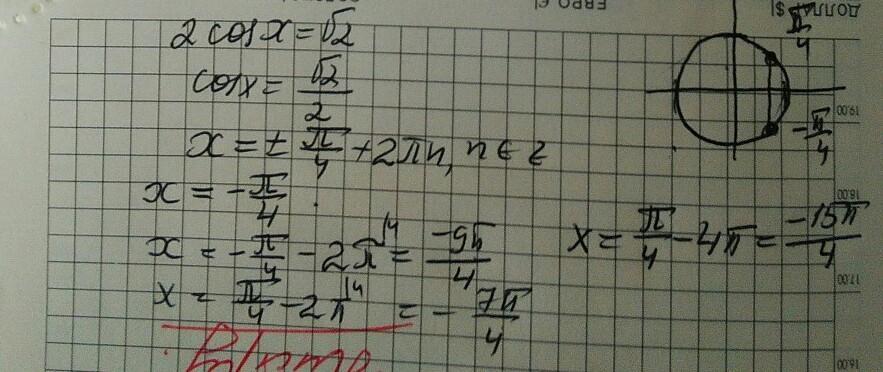 2 cos x = √2
cos x = √2/2
x = ± π/4 + 2πn, n ∈ z
x = -π/4
x = -π/4 - 2π\4 = -9π/4
x = π/4 - 2π\4 = -7π/4
x = π/4 - 4π = -15π/4
π/4
-π/4
ЕВРО €|
ДОЛЛАР $|
19.00
18.00
17.00
16.00